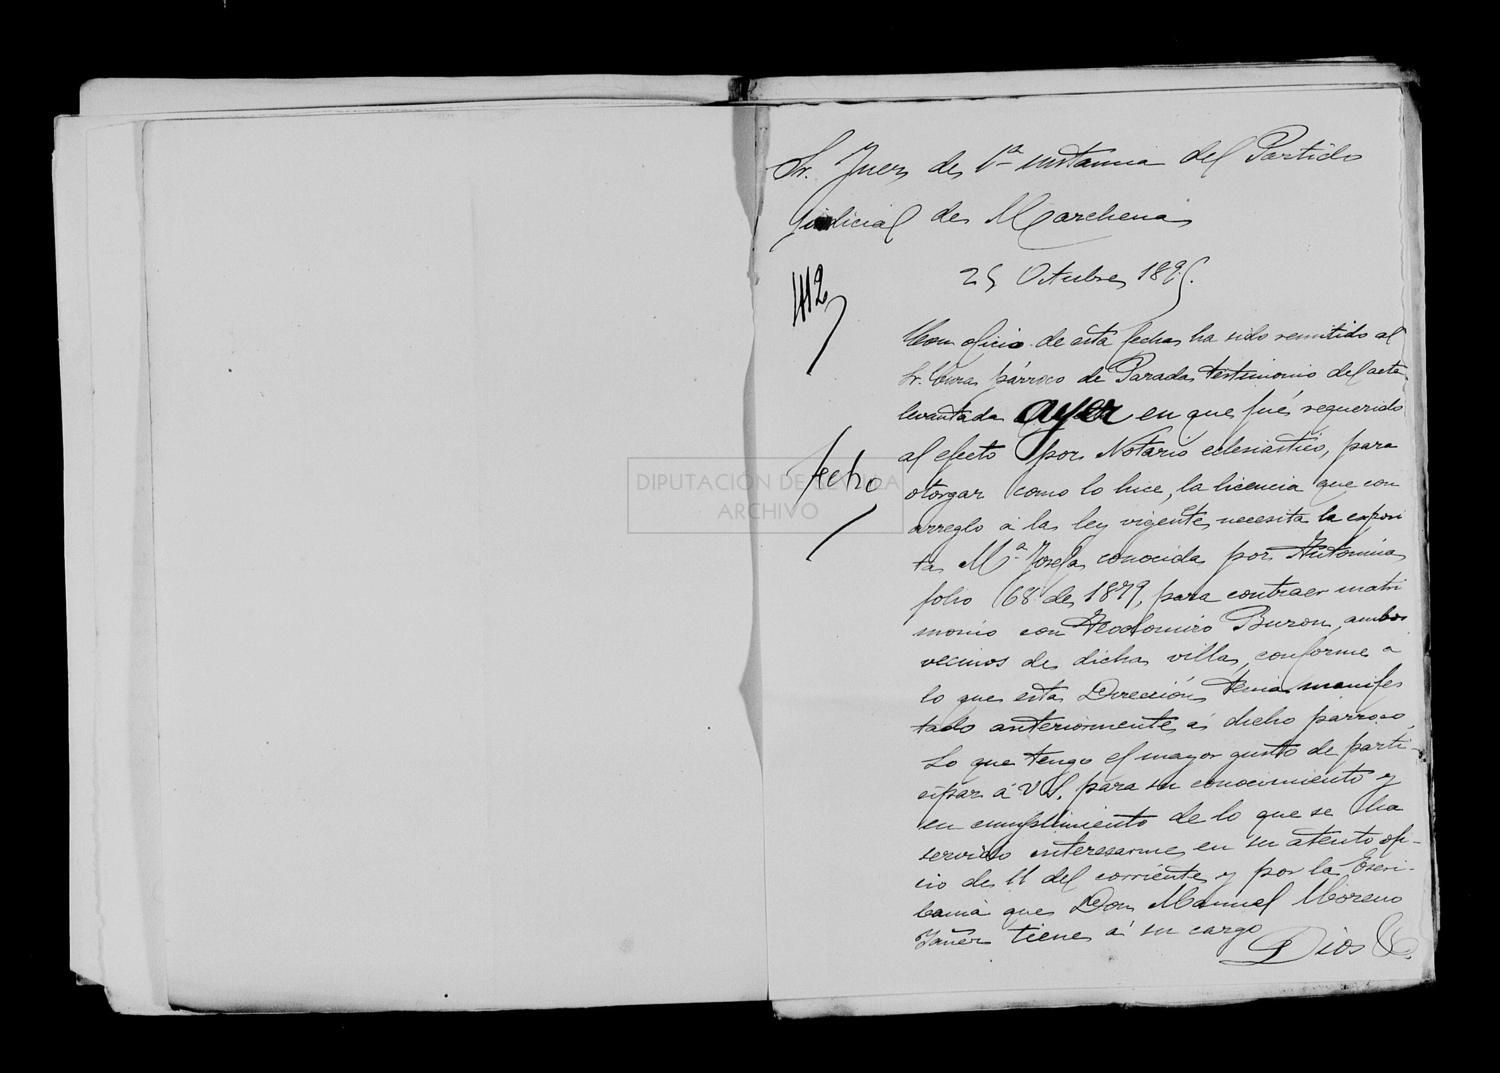 Sr. Juez de 1ª instancia del Partido
judicial de Marchena
25 Octubre 1895.
412
Con oficio de esta fecha ha sido remitido al
Sr. Cura párroco de Paradas testimonio del acta
levantada ayer en que fué requerido
al efecto por Notario eclesiastico, para
fecho
DIPUTACIÓN DE SEVILLA
ARCHIVO
otorgar como lo hice, la licencia que con
arreglo á la ley vigente necesita la exposi
ta Mª Josefa conocida por Antonina
folio 168 de 1879, para contraer matri
monio con Teodomiro Buron, ambos
vecinos de dicha villa, conforme a
lo que esta Dirección tenia manifes
tado anteriormente á dicho párroco,
Lo que tengo el mayor gusto de parti-
cipar á V.S. para su conocimiento y
en cumplimiento de lo que se ha
servido interesarme en su atento ofi-
cio de 11 del corriente y por la Escri-
bania que Don Manuel Moreno
Yañez tiene á su cargo
Dios &.